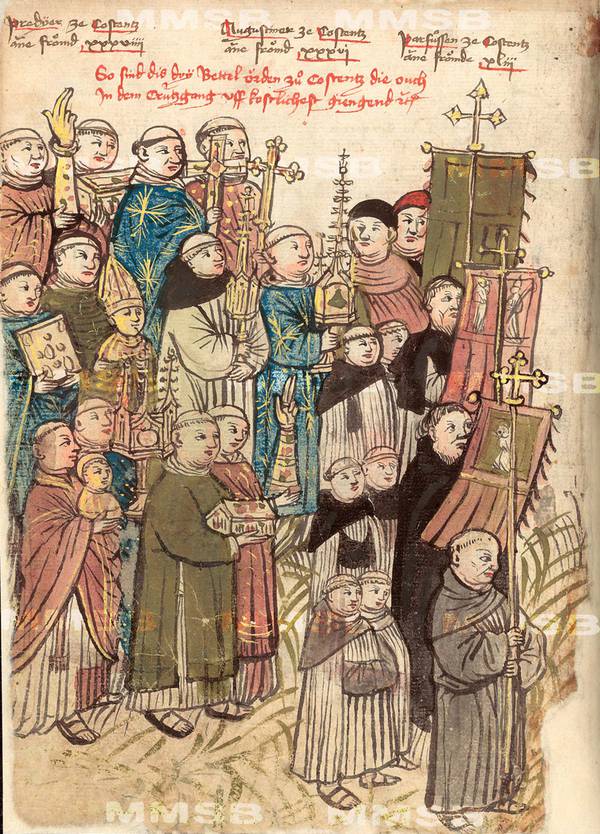 MMSB MMSB
Predyer ze Costentz
āne frömd xxxviiii
Augustiner ze Costentz
āne frömd xxxvi
Barfussen ze Costentz
āne frömde xliii
So sind dis dry Bettel örden zů Costentz die ouch
In dem Crützgang uff kostlichest giengend
MMSB
MMSB
MMSB
MMSB
MMSB MMSB